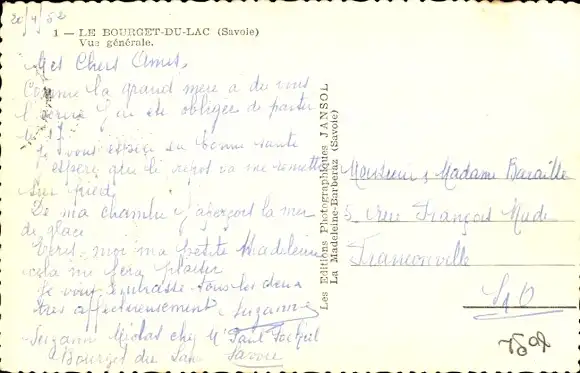 20/4/52
1 — LE BOURGET-DU-LAC (Savoie)
Vue générale.
Mes Chers Amis,
Comme la grand mere a du vous
l'ecrire j'ai ete obligée de partir
le 17.
Je vous espère en bonne santé
espère que le repos va me remettre
sur pied.
De ma chambre j'aperçois la mer
de glace
Ecris-moi ma petite Madeleine
cela me fera plaisir
Je vous embrasse tous les deux
très affectueusement Suzanne
Suzann Nicolas chez Mr Paul
Bourget du Lac Savoie
Les Editions Photographiques JANSOL
La Madeleine-Barberaz (Savoie)
Monsieur & Madame Baraille
5 rue François
Franconville
S &amp; O